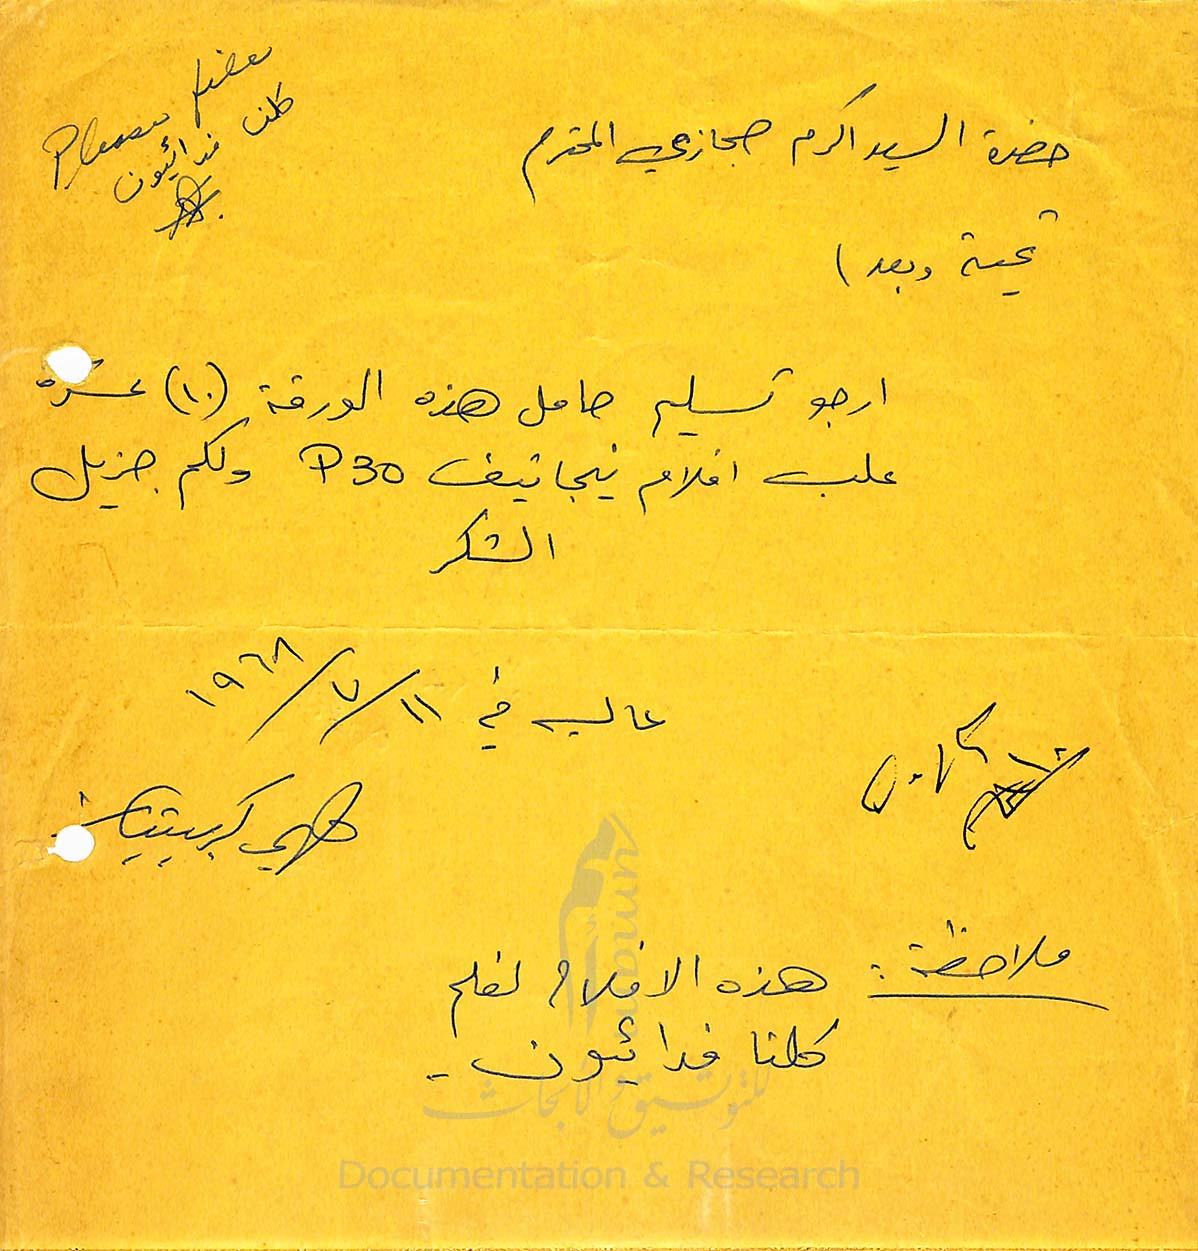 Please file
كلنا
فدائيون
حضرة السيد اكرم حجازي المحترم
تحية وبعد ،
ارجو تسليم حامل هذه الورقة (١٠) عشرة
علب افلام نيجاتيف P30 ولكم جزيل
الشكر
عاليه في ١١/٧/١٩٦٨
كريستيان
ملاحظة : هذه الافلام لفلم
كلنا فدائيون -
umam
للتوثيق والأبحاث
Documentation & Research